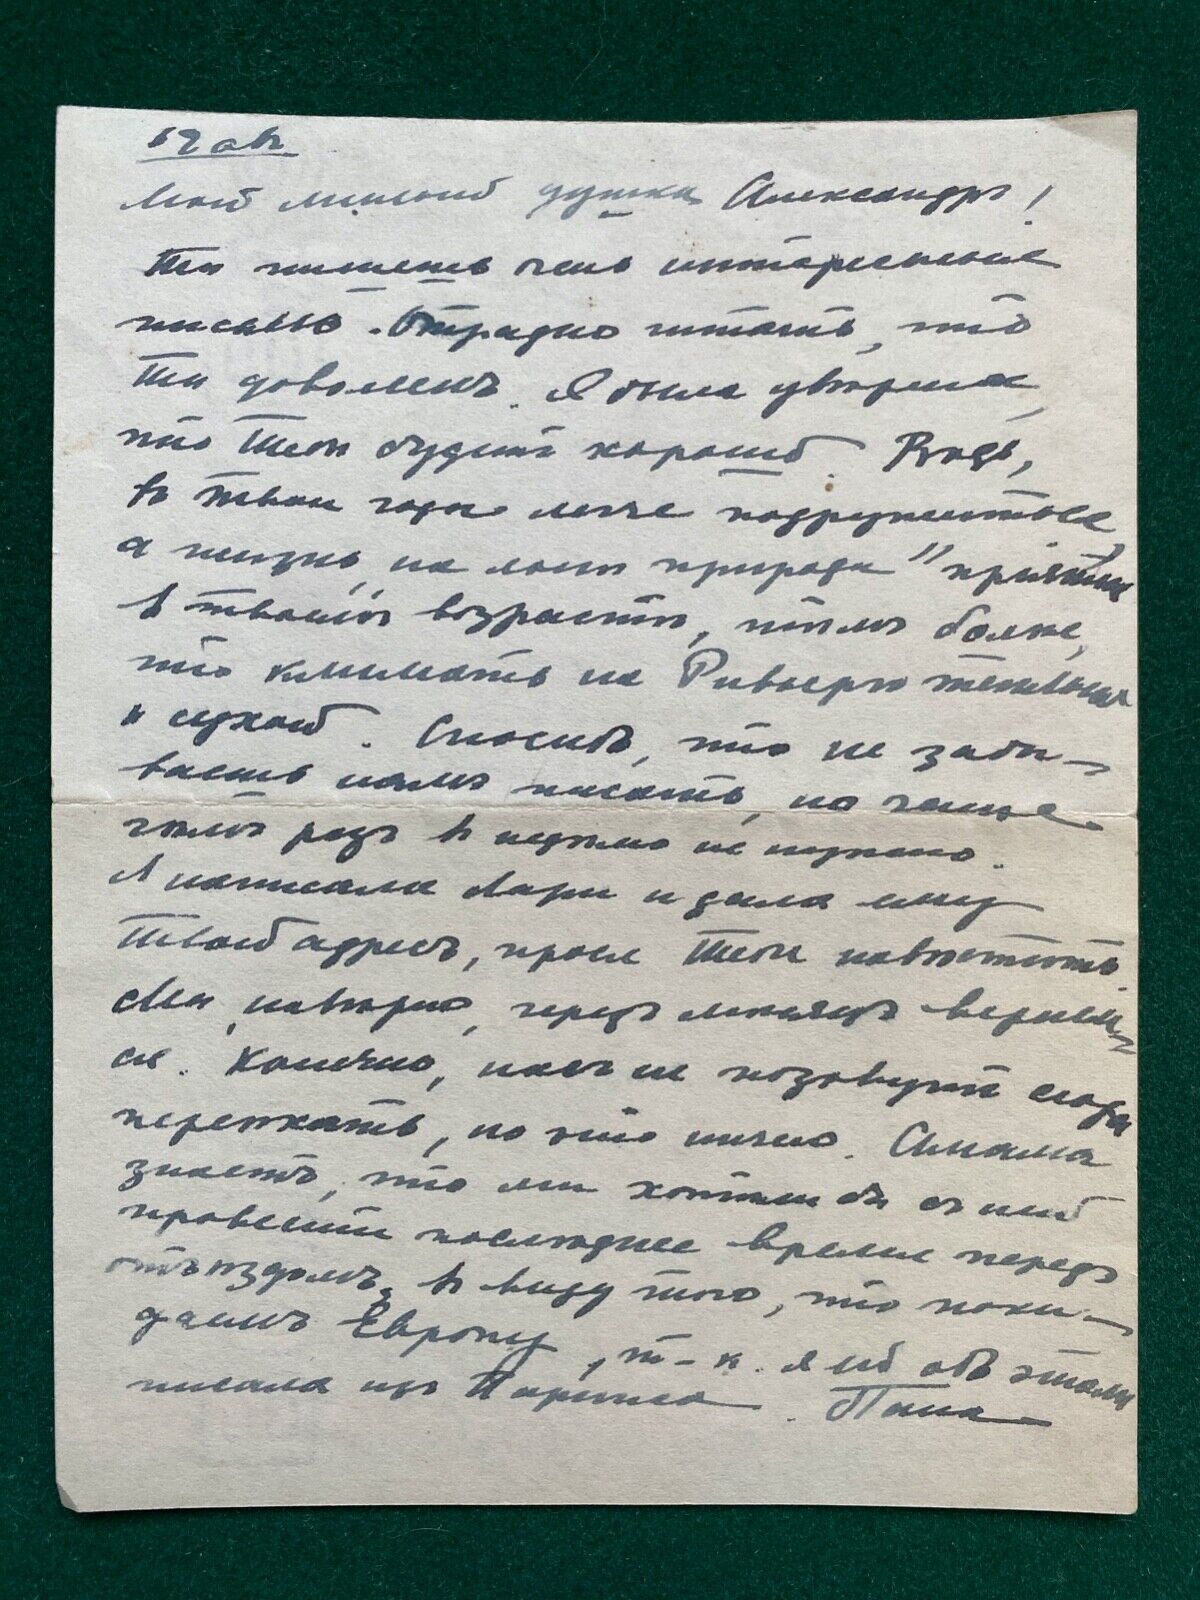 12 авг.
Мой милый душка Александръ!
Ты пишешь очень интересныя
письма. Отрадно читать, что
Ты доволенъ. Я была увѣрена,
что Тебѣ будетъ хорошо. Вѣдь,
въ твои годы легче подружиться,
а жизнь „на лонѣ природы" пріятна
въ твоемъ возрастѣ, тѣмъ болѣе,
что климатъ на Ривьерѣ
и сухой. Спасибо, что не забы-
ваешь намъ писать, но чаще
чѣмъ разъ въ недѣлю не нужно.
Я написала и дала ему
Твой адресъ, прося Тебя навѣстить.
Мы, навѣрно, черезъ мѣсяцъ вернем-
ся. Конечно, насъ не позовутъ сюда
переѣхать, но это ничего. Амама
знаетъ, что мы хотѣли бы съ ней
провести послѣднее время передъ
отъѣздомъ, въ виду того, что поки-
даемъ Европу, т-к. я ей объ этомъ
писала изъ Парижа. Папа